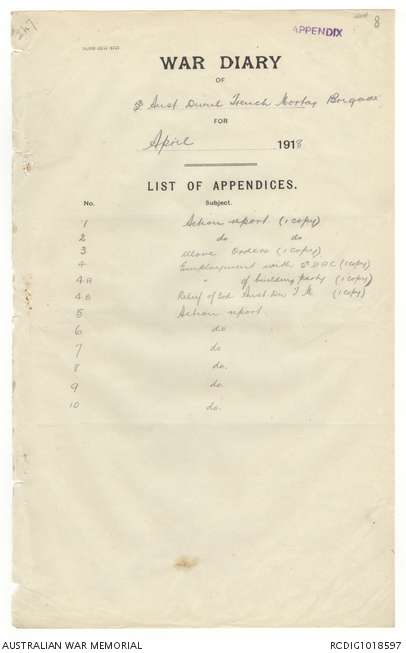 APPENDIX
8
247
WAR DIARY
OF
5 Aust Divnl Trench Mortar Brigade
FOR
April 1918
LIST OF APPENDICES.
No. Subject.
1 Action report (1 copy)
2 do do
3 Move Orders (1 copy)
4 Employment with 5 DAC (1 copy)
4A " of building party (1 copy)
4B Relief of 2nd Aust Div T M (1 copy)
5 Action report.
6 do
7 do
8 do.
9 do.
10 do.
AUSTRALIAN WAR MEMORIAL
RCDIG1018597